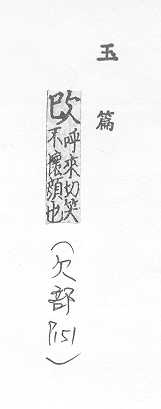 玉篇
呼來切笑
不壞顏也
(欠部P151)